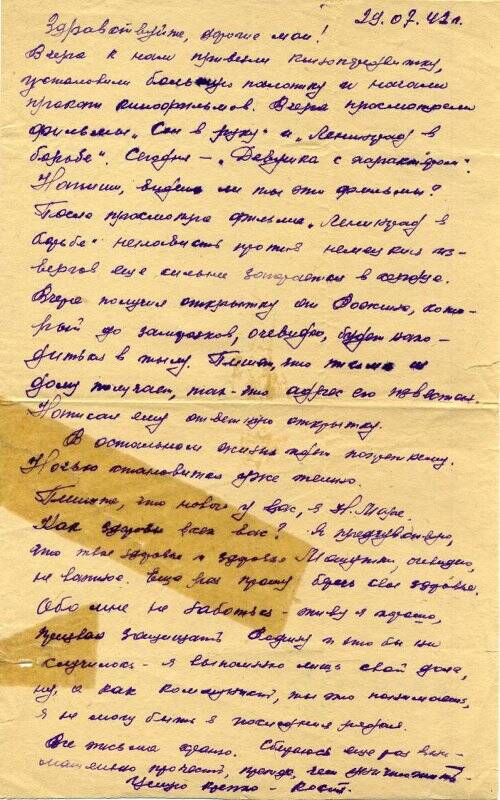 29.07.42 г.
Здравствуйте, дорогие мои!
Вчера к нам привезли кинопередвижку,
установили большую палатку и начали
прокат кинофильмов. Вчера просмотрели
фильмы „Сон в руку" и „Ленинград в
борьбе". Сегодня – „Девушка с характером".
Напиши, видели ли ты эти фильмы?
После просмотра фильма „Ленинград в
борьбе" ненависть против немецких из-
вергов еще сильнее в сердце.
Вчера получил открытку от кото-
рый до очевидно, будет нахо-
диться в тылу. Пишет, что письма из
дому получает, так-что адрес его известен.
Написал ему ответную открытку.
В остальном жизнь идет по прежнему.
Ночью становится уже темно.
Пишите, что нового у вас, в Н.
Как здоровье всех вас? Я предчувствую,
что твое здоровье и здоровье очевидно,
не важное. Еще раз прошу беречь свое здоровье.
Обо мне не заботься – живу я хорошо,
призван защищать Родину и что бы ни
случилось – я выполняю лишь свой долг,
ну, а как коммунист, ты это понимаешь,
я не могу быть в последних рядах.
Все письма храню. Собираюсь еще раз вни-
мательно прочесть, прежде, чем уничтожить.
Целую крепко – Костя.